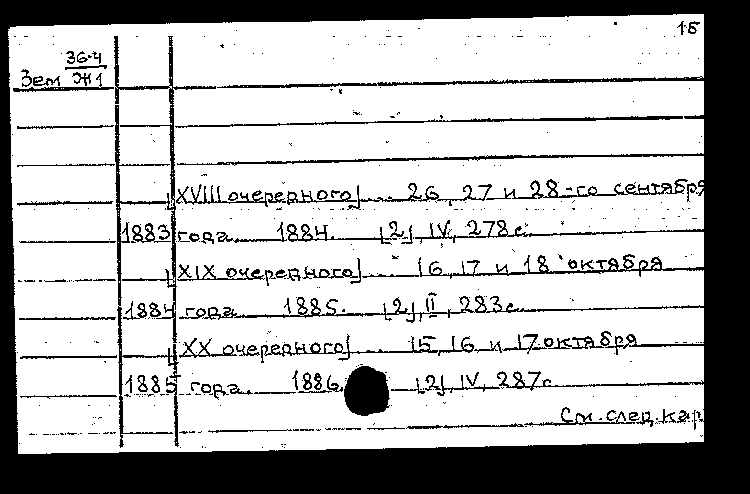 15
36·4
Зем Ж1
[XVIII очередного] ... 26, 27 и 28-го сентября
1883 года. 1884. [2], IV, 278 с.
[XIX очередного] ... 16, 17 и 18 октября
1884 года. 1885. [2], II, 283 с.
[XX очередного] ... 15, 16 и 17 октября
1885 года. 1886. [2], IV, 287 с.
См. след. кар